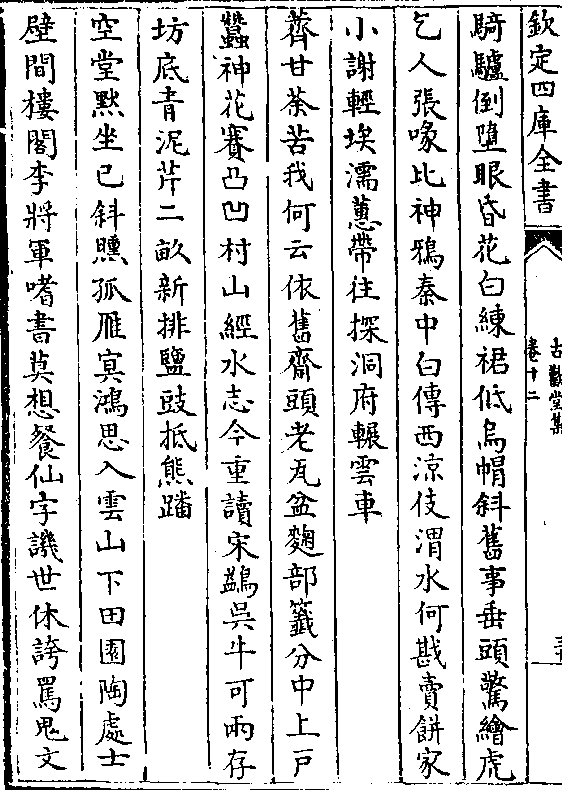 欽定四庫全書
古歡堂集
卷十二
騎驢倒墮眼昏花白練裙低烏㡌斜舊事垂頭驚繪虎
乞人張喙比神鴉秦中白傳西涼伎渭水何戡賣餅家
小謝輕埃濡蕙帶往探洞府輾雲車
薺甘荼苦我何云依舊齋頭老瓦盆麴部籤分中上戸
蠶神花賽凸凹村山經水志今重讀宋鷁吳牛可兩存
坊底青泥芹二畝新排鹽豉抵熊蹯
空堂黙坐已斜曛孤雁𡨋鴻思入雲山下田園陶處士
壁間樓閣李將軍嗜書莫想餐仙字譏世休誇罵鬼文